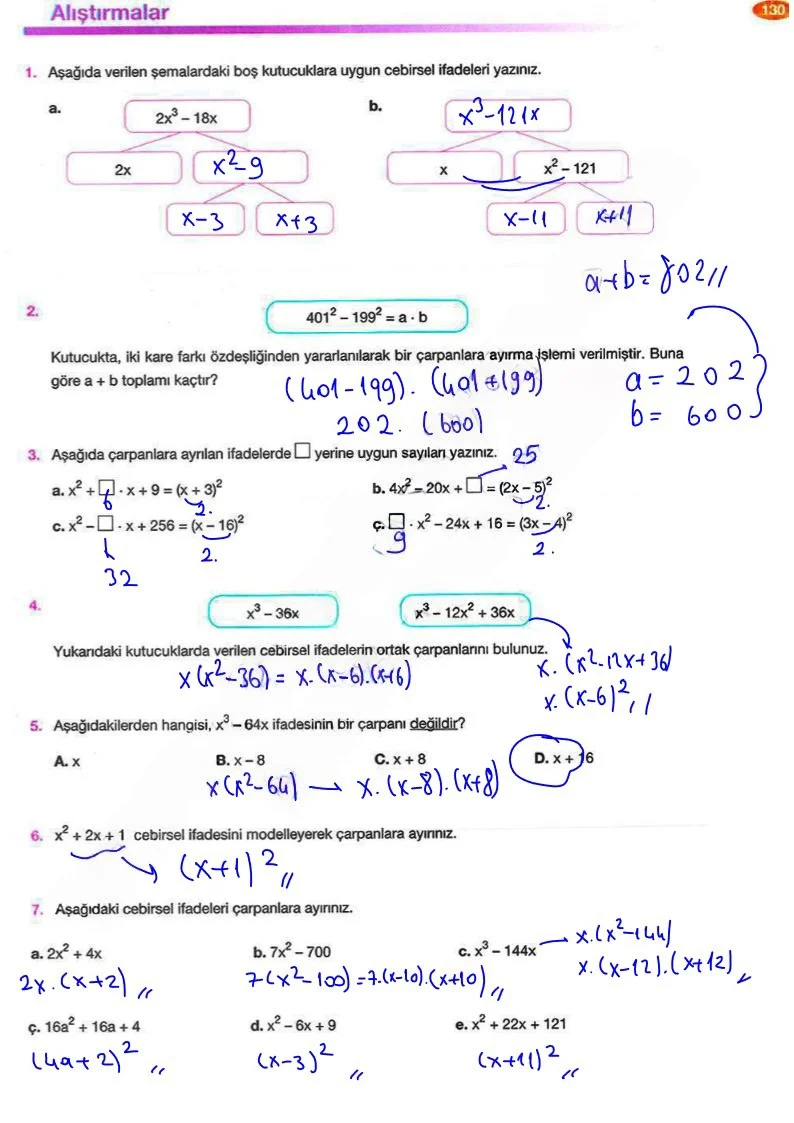 Alıştırmalar 130
1. Aşağıda verilen şemalardaki boş kutucuklara uygun cebirsel ifadeleri yazınız.
a. 2x³ – 18x b. x³-121x
2x x²-9 x x² – 121
x-3 x+3 x-11 x+11
a+b= 802//
2. 401² – 199² = a · b
Kutucukta, iki kare farkı özdeşliğinden yararlanılarak bir çarpanlara ayırma işlemi verilmiştir. Buna
göre a + b toplamı kaçtır? (401-199). (401+199) a = 202
202. (600) b = 600
3. Aşağıda çarpanlara ayrılan ifadelerde □ yerine uygun sayıları yazınız. 25
a. x² + □ · x + 9 = (x + 3)² b. 4x² – 20x + □ = (2x – 5)²
6 2. 2.
c. x² – □ · x + 256 = (x – 16)² ç. □ · x² – 24x + 16 = (3x – 4)²
2. 9 2.
32
4. x³ – 36x x³ – 12x² + 36x
Yukarıdaki kutucuklarda verilen cebirsel ifadelerin ortak çarpanlarını bulunuz. x. (x²-12x+36)
x(x²-36) = x.(x-6).(x+6) x. (x-6)²,,
5. Aşağıdakilerden hangisi, x³ – 64x ifadesinin bir çarpanı değildir?
A. x B. x – 8 C. x + 8 D. x + 16
x(x²-64) → x. (x-8). (x+8)
6. x² + 2x + 1 cebirsel ifadesini modelleyerek çarpanlara ayırınız.
(x+1)²,,
7. Aşağıdaki cebirsel ifadeleri çarpanlara ayırınız.
x.(x²-144)
a. 2x² + 4x b. 7x² – 700 c. x³ – 144x
2x.(x+2),, 7(x²-100) = 7.(x-10).(x+10),, x. (x-12).(x+12),,
ç. 16a² + 16a + 4 d. x² – 6x + 9 e. x² + 22x + 121
(4a+2)²,, (x-3)²,, (x+11)²,,